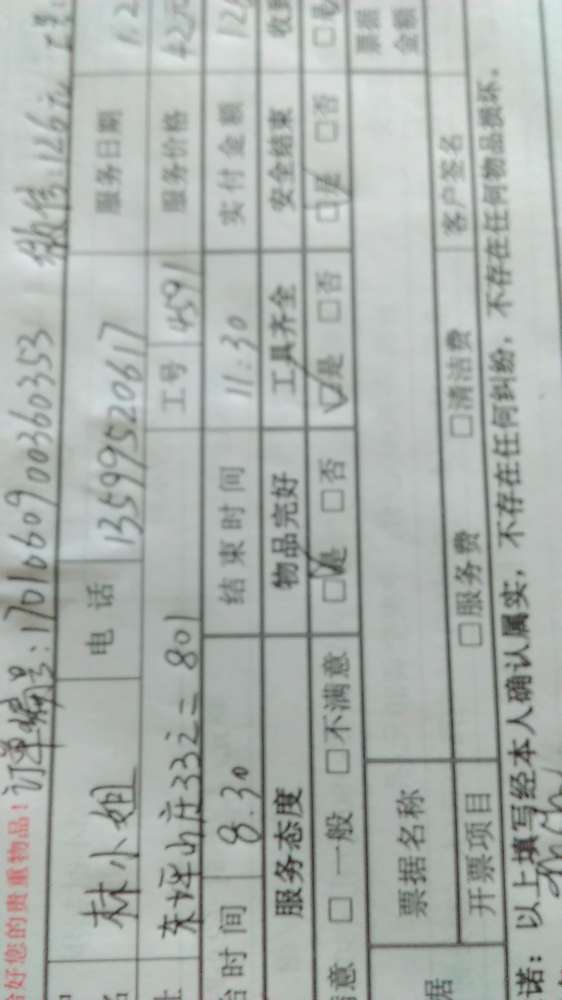 好您的贵重物品! 订单编号:1701060900360353 微信:126元
林小姐 电话 13599520617 服务日期 1.2
801 工号 4591 服务价格 42元
时间 8.30 结束时间 11:30 实付金额 12
服务态度 物品完好 工具齐全 安全结束 收到
意 □一般 □不满意 □是 □否 □是 □否 □是 □否 □
票据名称 票据金额
据 开票项目 □服务费 □清洁费 客户签名
诺:以上填写经本人确认属实,不存在任何纠纷,不存在任何物品损坏。